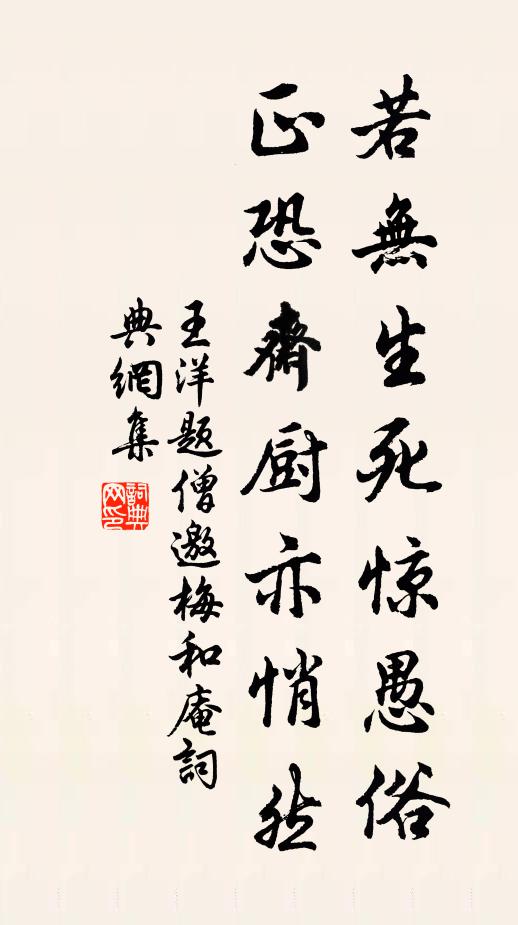 若無生死惊愚俗
正恐齋厨亦悄然
王洋题僧邀梅和庵詞
典網集
詞典网印